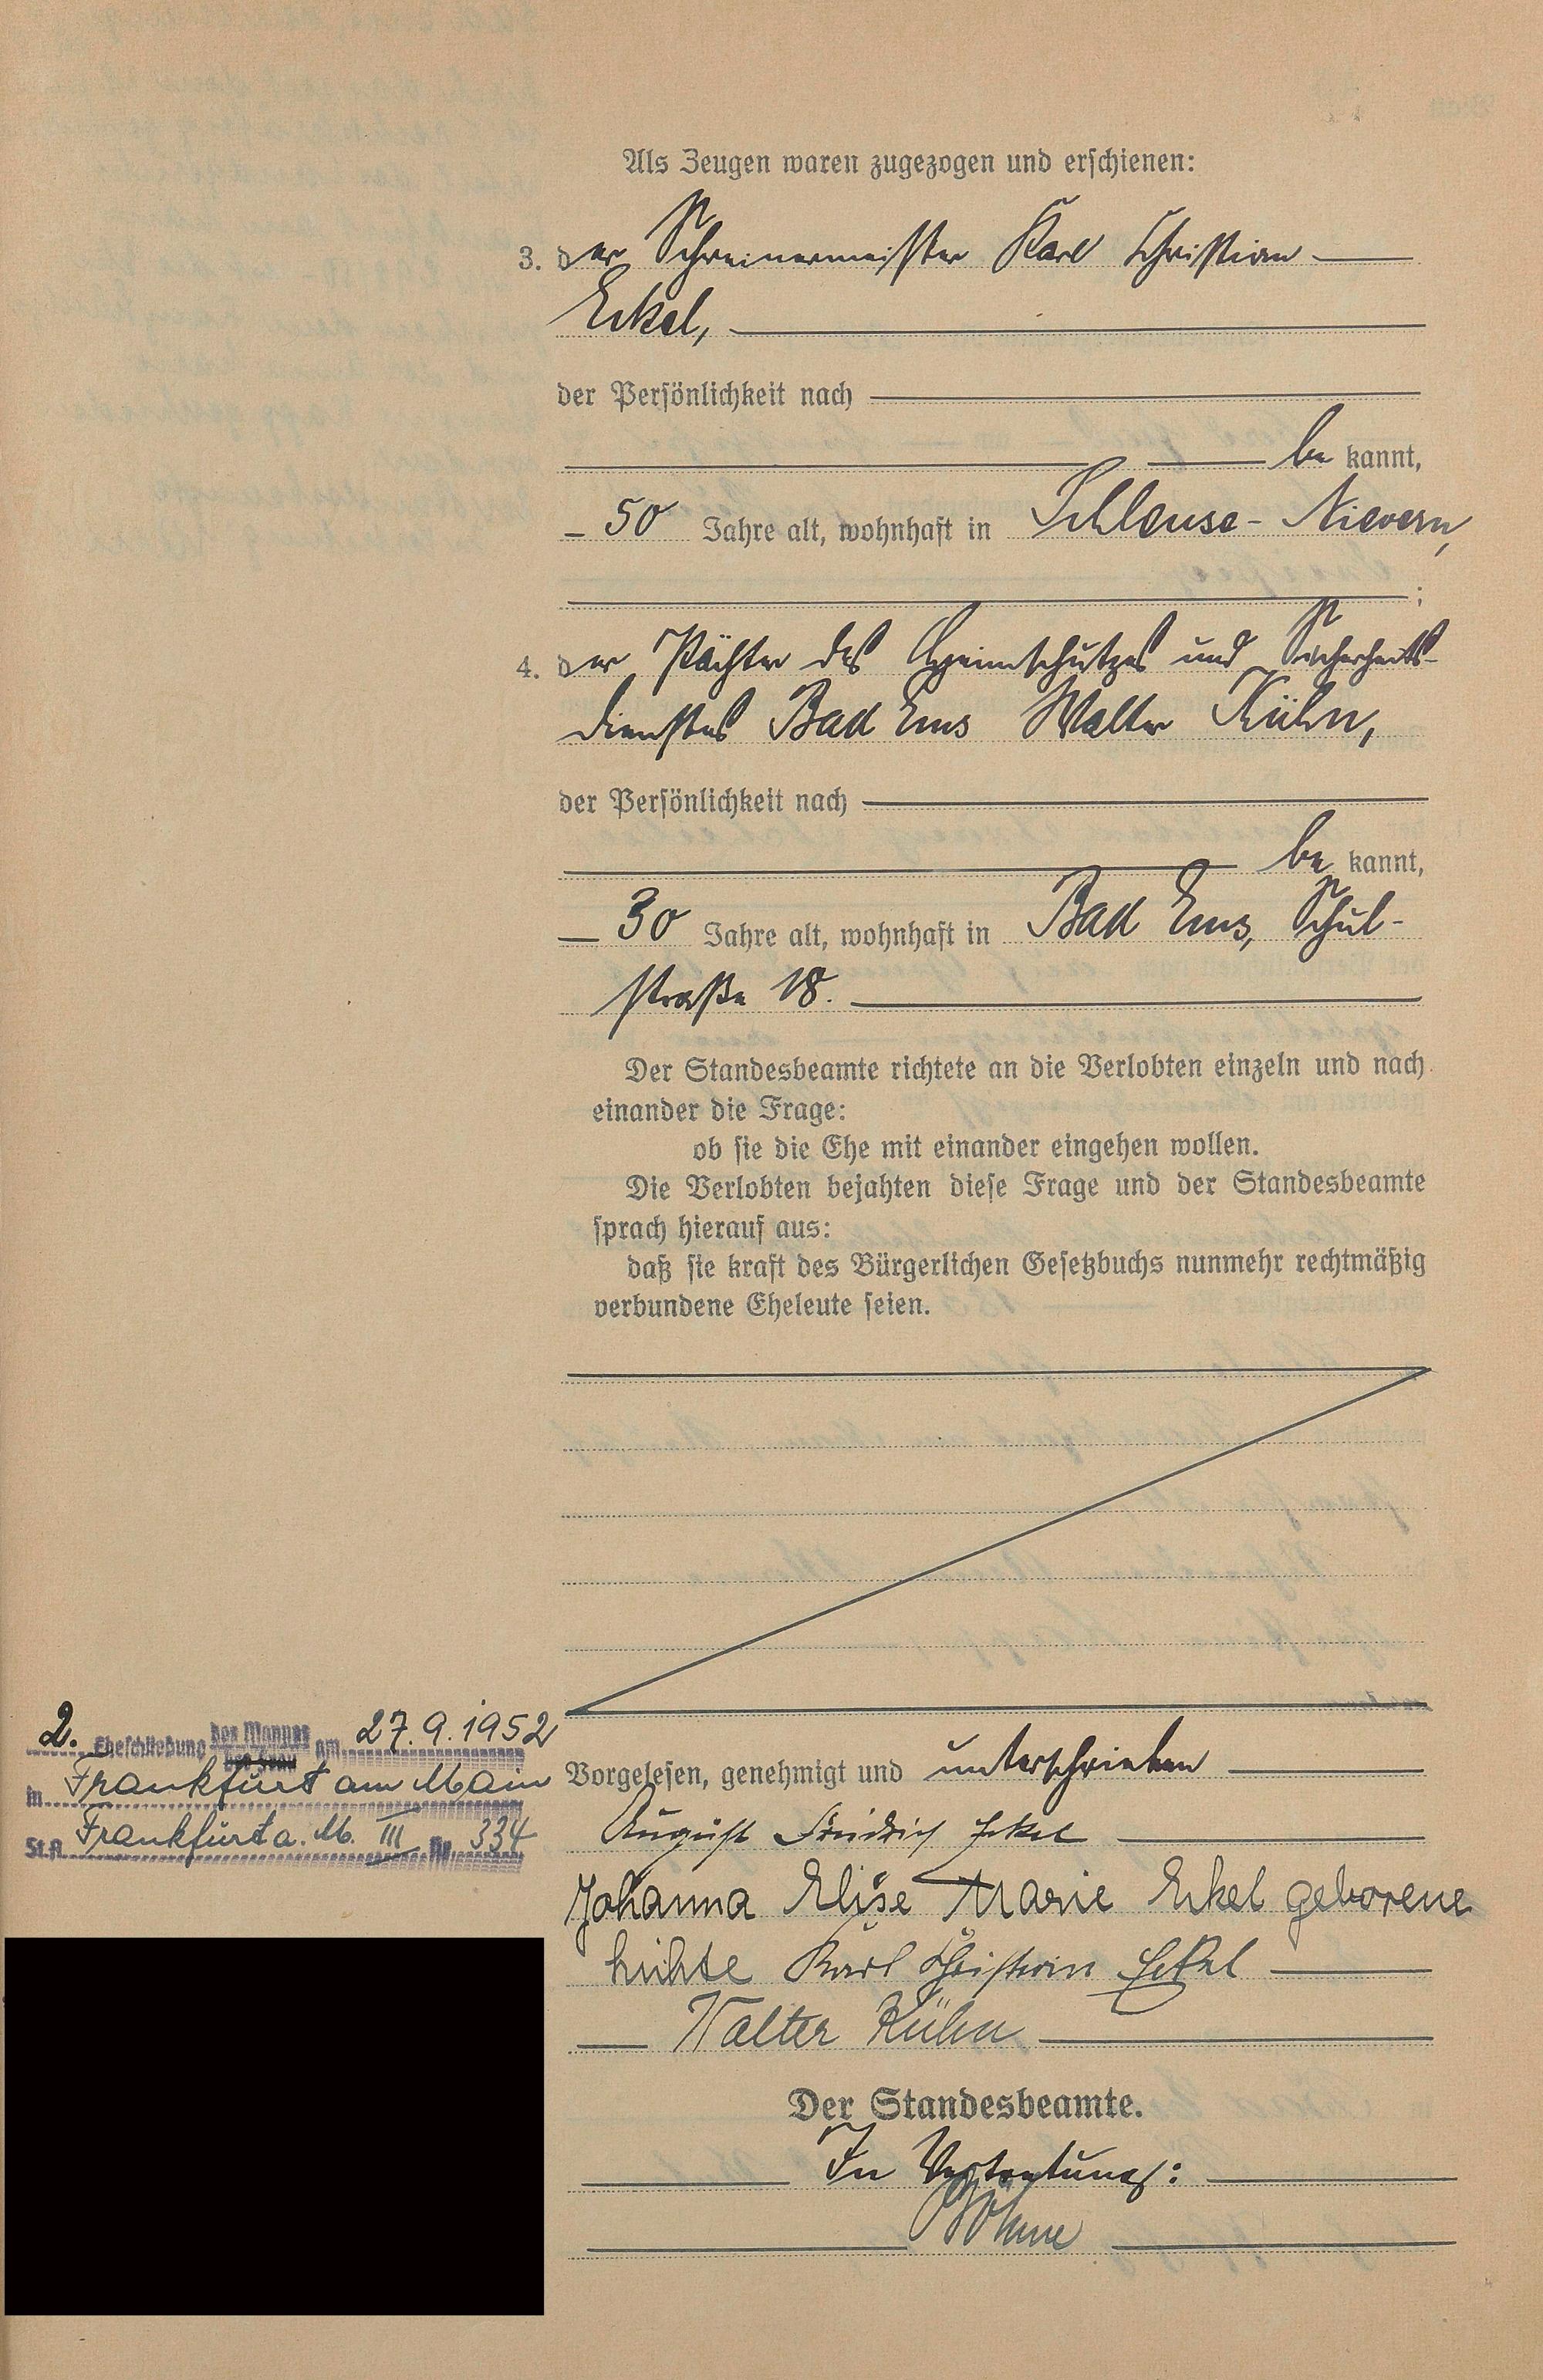 Als Zeugen waren zugezogen und erschienen:
3. der Schreinermeister Karl Christian
Eckel,
der Persönlichkeit nach
be kannt,
50 Jahre alt, wohnhaft in Schleuse-Nievern,
;
4. der Pächter des Heimschutzes und Sicherheits-
dienstes Bad Ems Walter Kühn,
der Persönlichkeit nach
be kannt,
30 Jahre alt, wohnhaft in Bad Ems, Schul-
straße 18.
Der Standesbeamte richtete an die Verlobten einzeln und nach
einander die Frage:
ob sie die Ehe mit einander eingehen wollen.
Die Verlobten bejahten diese Frage und der Standesbeamte
sprach hierauf aus:
daß sie kraft des Bürgerlichen Gesetzbuchs nunmehr rechtmäßig
verbundene Eheleute seien.
Vorgelesen, genehmigt und unterschrieben
August Friedrich Eckel
Johanna Elise Marie Eckel geborene
Karl Christian Eckel
Walter Kühn
Der Standesbeamte.
In Vertretung:
2. Eheschließung des Mannes der Frau am 27.9.1952
in Frankfurt am Main
St.A. Frankfurt a. M. III Nr. 334